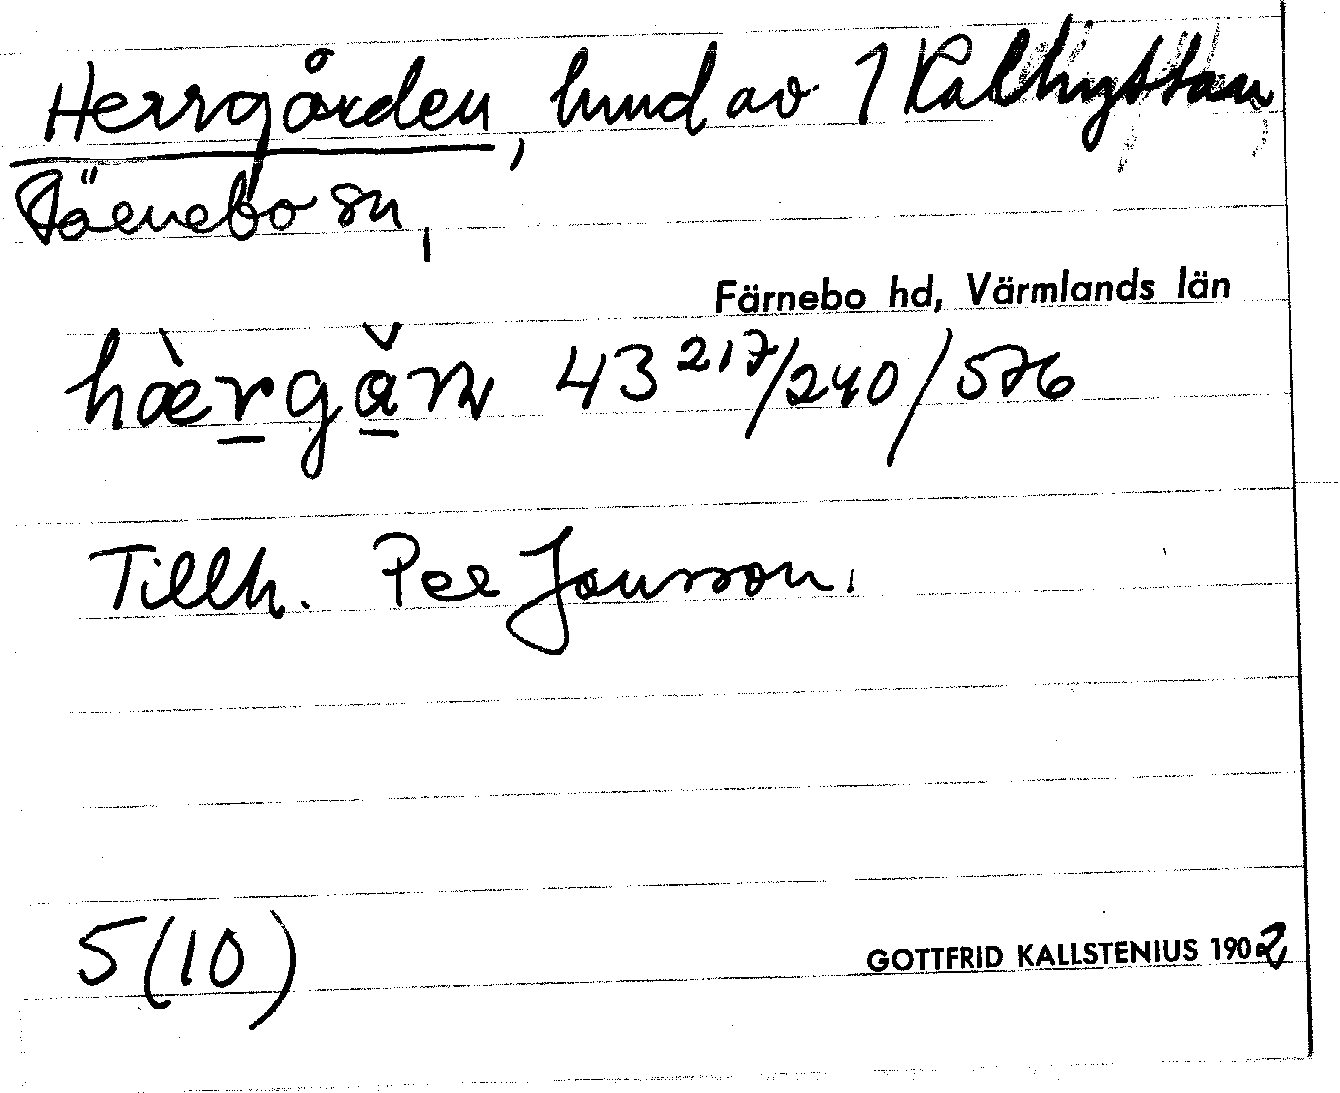 Herrgården, hmd av 1 Kalhyttan,
Färnebo sn,
Färnebo hd, Värmlands län
hæ̀rgǎn 43 217/240/576
Tillh. Per Jonsson.
5(10)
GOTTFRID KALLSTENIUS 1902